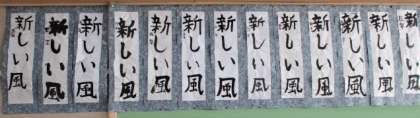 新しい風
新しい風
新しい風
新しい風
新しい風
新しい風
新しい風
新しい風
新しい風
新しい風
新しい風
新しい風